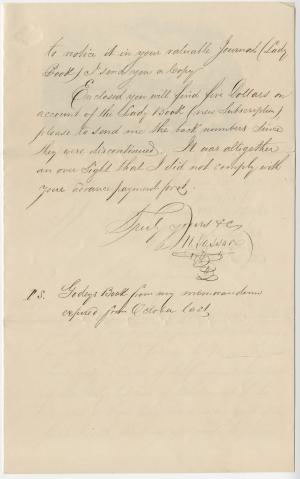 to notice it in your valuable Journal (Lady
Book) I send you a Copy
Enclosed you will find five Dollars on
account of the Lady Book (new Subscription)
please to send me the back numbers since
they were discontinued. It was altogether
an over Sight that I did not comply with
your advance payment
Truly yours &c
P.S. Godeys Book from my memorandum
expired October last